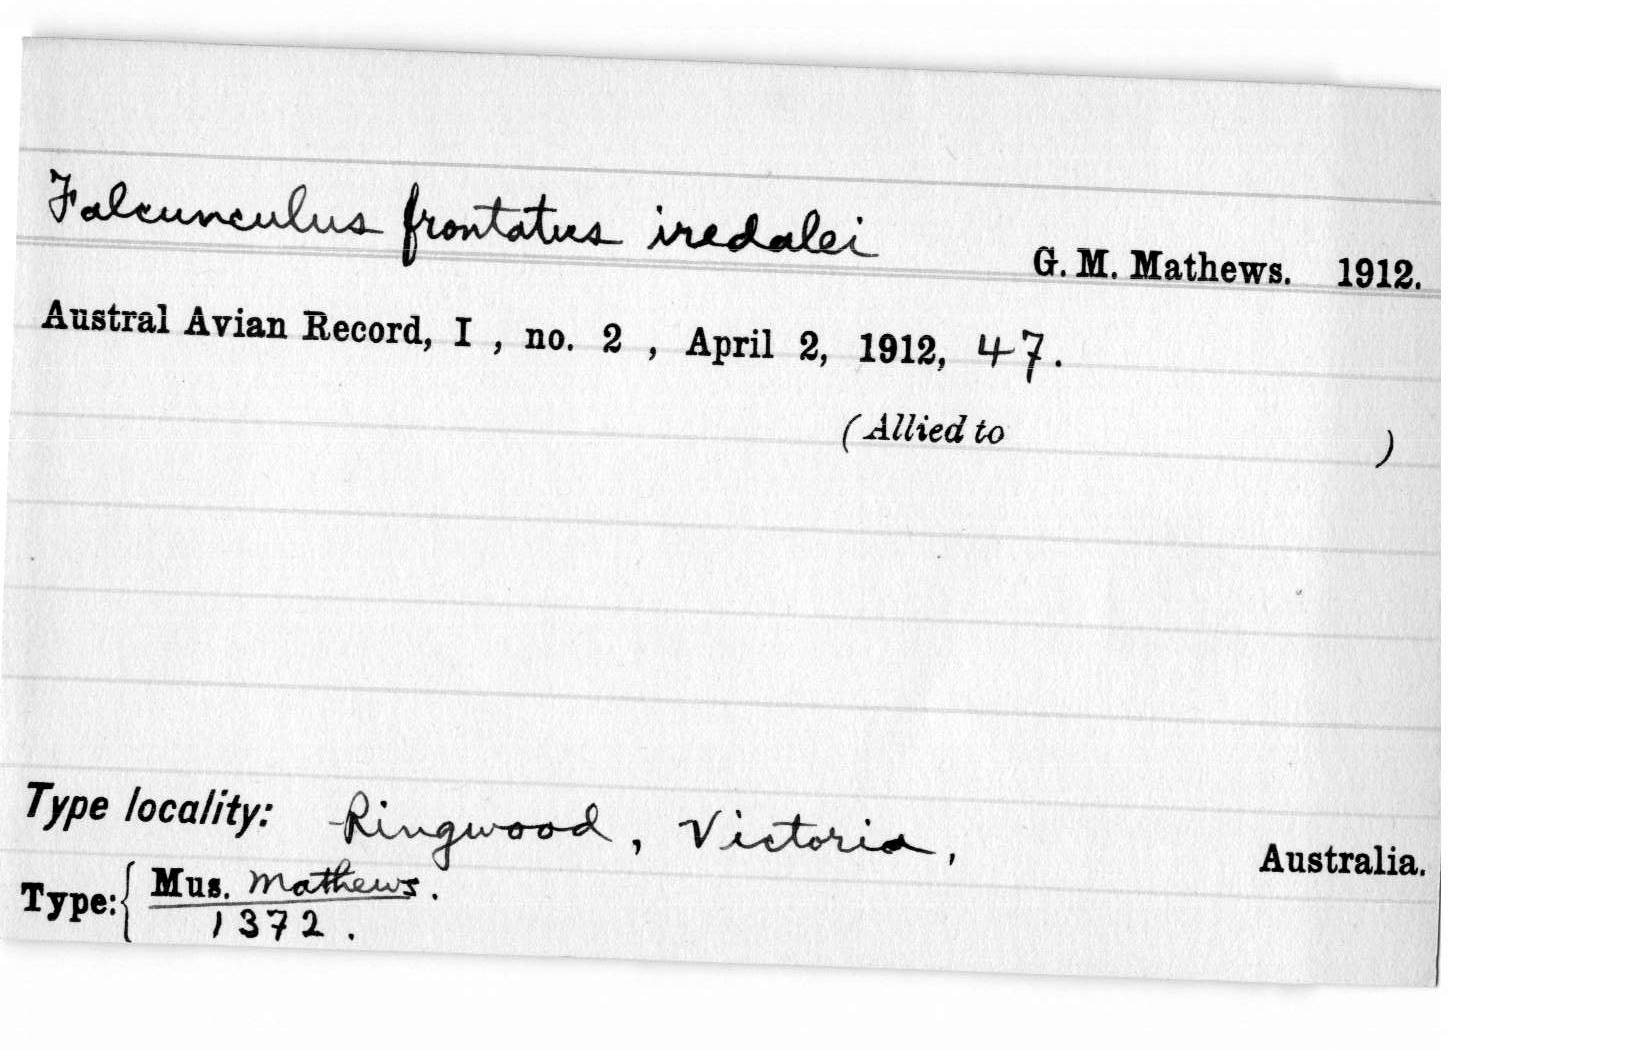 Falcunculus frontatus iredalei G. M. Mathews. 1912.
Austral Avian Record, I , no. 2 , April 2, 1912, 47.
(Allied to )
Type locality: Ringwood, Victoria, Australia.
Type: { Mus. Mathews.
1372.